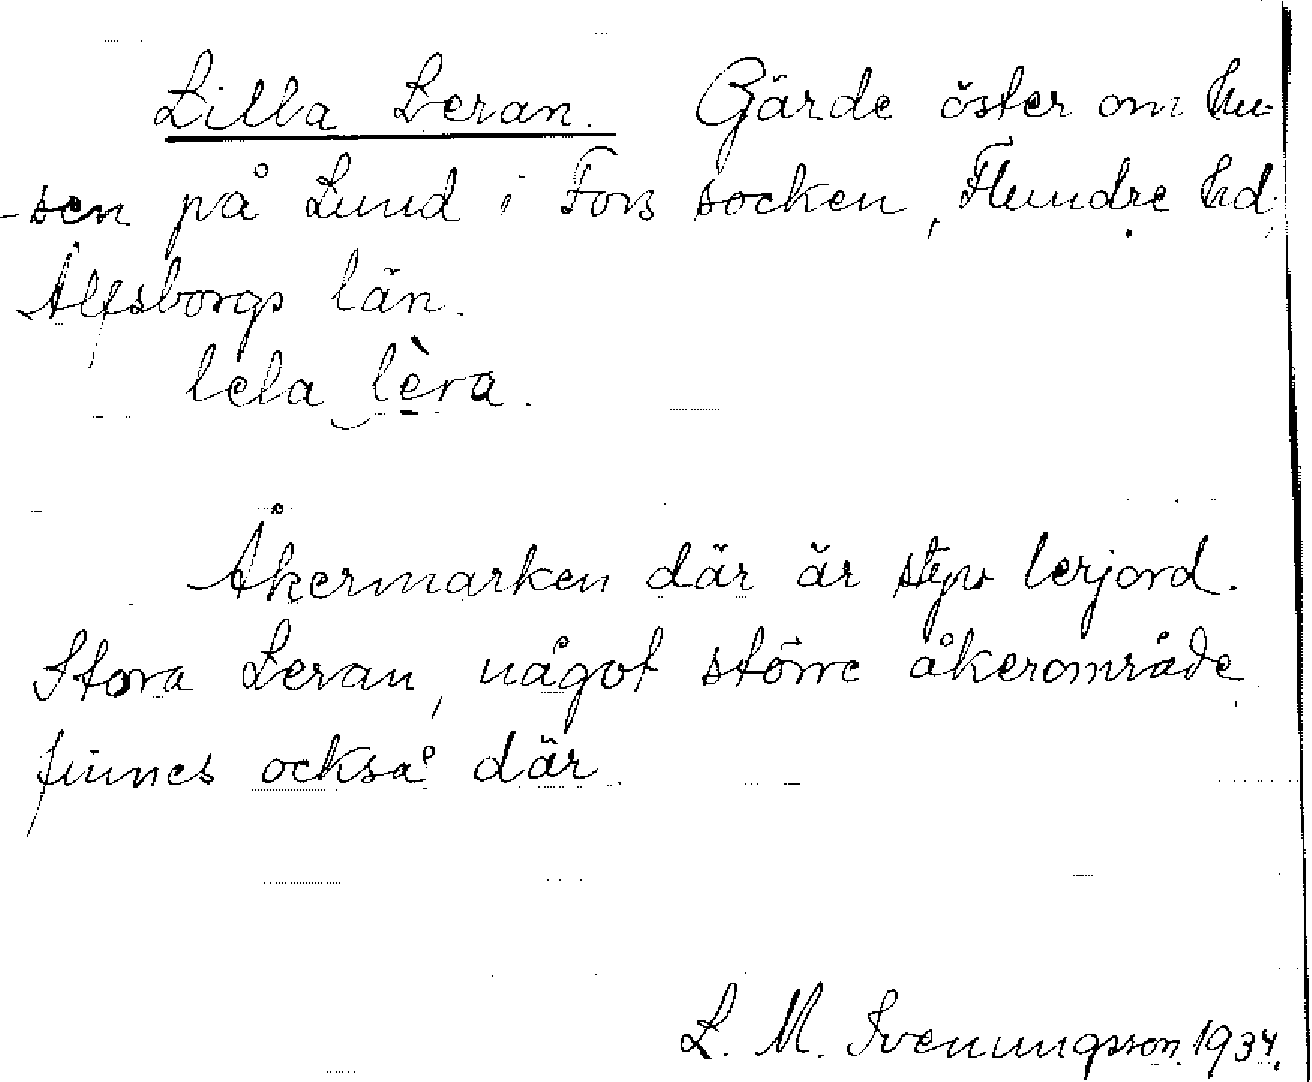 Lilla Leran. Gärde öster om hu-
-sen på Lund i Fors socken, Flundre hd.
Älfsborgs län.
lela lèra.
Åkermarken där är styv lerjord.
Stora Leran, något större åkerområde
finnes också där.
L. M. Svenungsson. 1934.